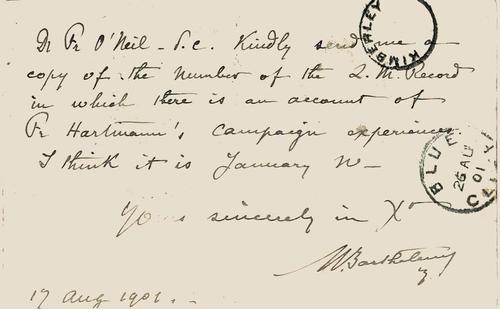 Dr Fr O'Neil - S.C. Kindly send me a
copy of the Number of the Z. M. Record
in which there is an account of
Fr Hartmann's campaign experiences
I think it is January No
Yours sincerely in Xº
M Barthelemy
17 Aug 1901.
KIMBERLEY
KIMBERLEY
BLUE
26 AU
01